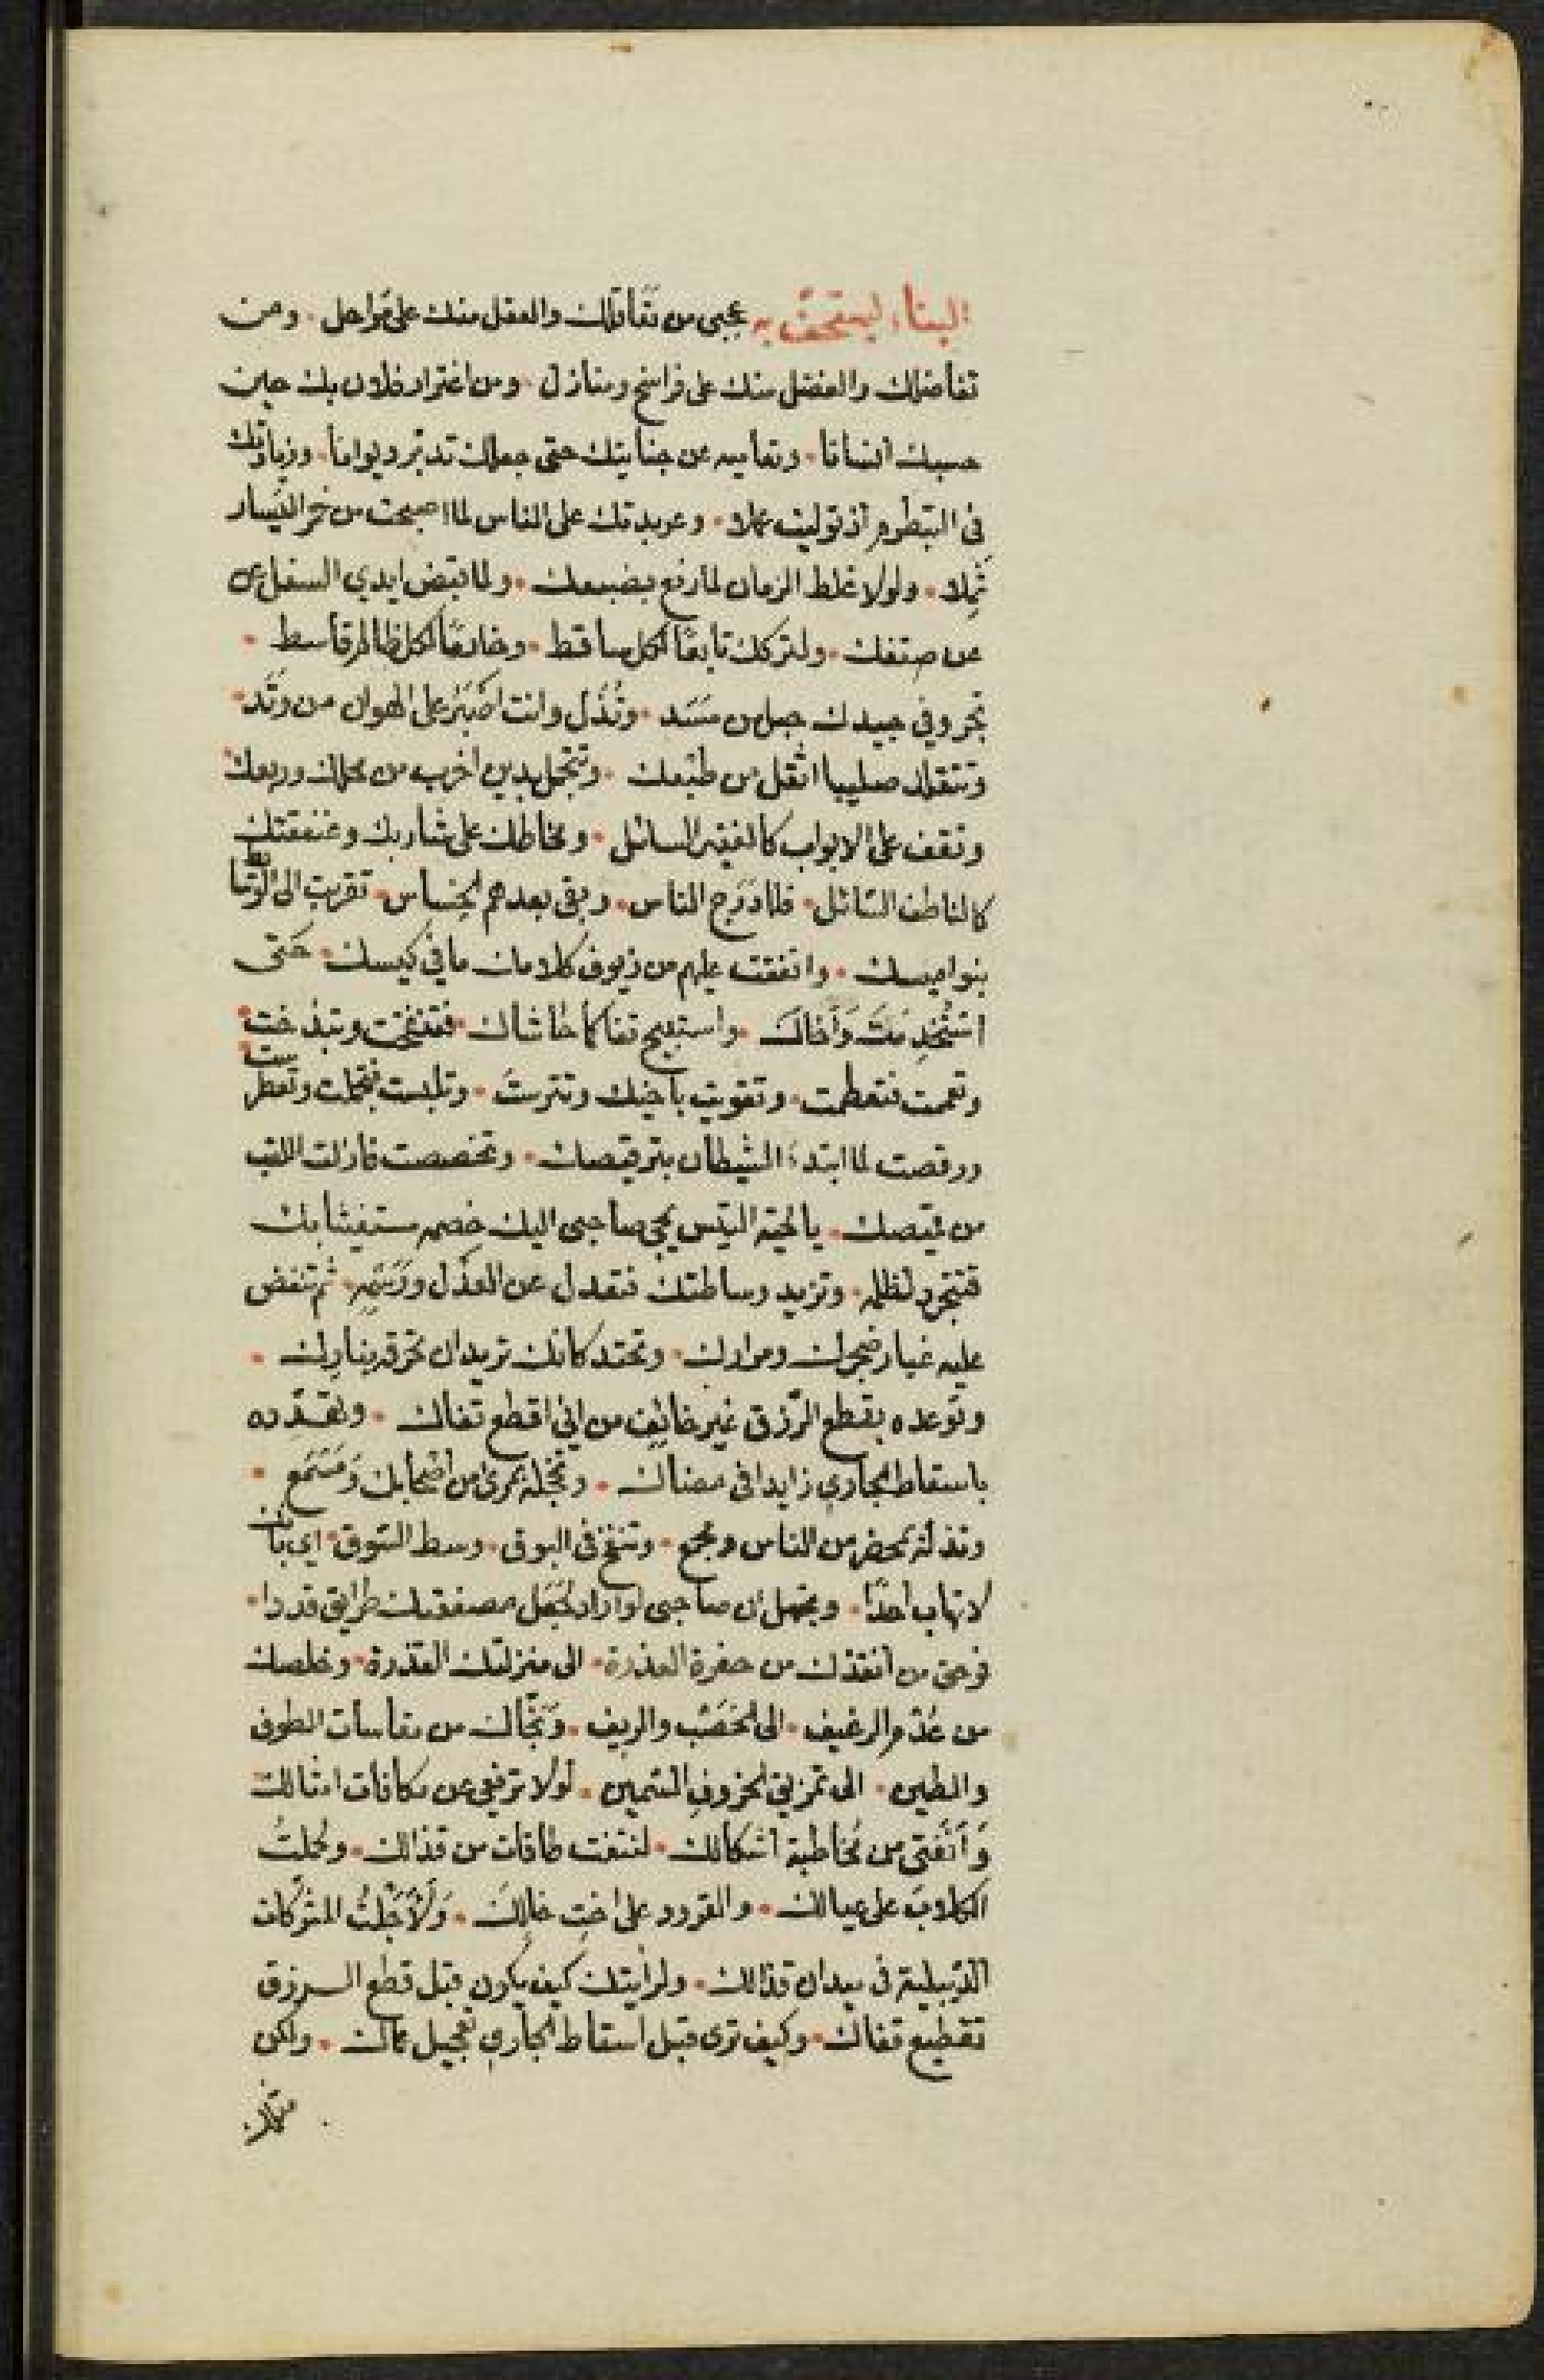 البناء ليستخف به عجبي من تعاقلك والعقل منك على مراحل ومن
تفاضلك والفضل منك على فراسخ ومنازل ومن اغترار فلان بك حين
حسبك انسانا وتعاميه عن جنايتك حتى جعلك تدبر ديوانا وزيادتك
في التبظرم اذ توليت عملا وعربدتك على الناس لما اصبحت من خمر اليسار
ثملا ولولا غلط الزمان لما رفع بضبعك ولما قبض ايدي السفل عن
عن صفعك ولتركك تابعًا لكل ساقط وخادمًا لكل ظالم قاسط
تجر وفي جيدك حبل من مسد وتُذَل وانت اصبَرُ على الهوان من وتَد
وتتقلد صليبا اثقل من طبعك وتتجمل بدين اخرب من محلك وربعك
وتقف على الابواب كالفقير السائل ومخاطك على شاربك وعنفقتك
كالناطف السَّائل فلما دَرَج الناس وبقي بعدهم الخساس تقربت الى الوُسَطا
بنواميسك وانفقت عليهم من زيوف كلامك ما في كيسك حَتى
استُخدِمتَ وَأخاك واستقبح قفاكما خاشاك فتنفخت وتبذخت
وتعممت فتعظمت وتقويت باخيك وتترستَ وتلبست فتجملت وتعطرست
ورقصت لما ابتدء الشيطان بترقيصك وتخصصت فما زلت اللقب
من قميصك يا لحية التيس يجي صاحبي اليك خصمه مستغيثا بك
فتتجرد لظلمه وتزيد وساطتك فتعدل عن العدل ورَسَمِهِ ثم تنفض
عليه غبار ضجرك ومرارك وتحتد كانك تريد ان تحرقه بنارك
وتوعده بقطع الرّزق غير خائف من اني اقطع قفاك وتهَدّده
باسقاط الجاري زايدا في مضناك وتخجله بمرئ من اصحابك وَمَسمَع
وتذله بمحضر من الناس ومجمع وتنفخ في البوق وسط السّوق اي بانك
لا تهاب احدًا وتجهل ان صاحبي لو اراد لجَعَل مصفعتك طرايق قددا
فوحق من انقذك من حفرة العذرة الى منزلتك القذرة وخلصك
من عُدْم الرغيف الى الخصْب والريف ونَجّاك من مقاسات الطوف
والطين الى تمزيق الخروف السّمين لولا ترفعي عن مكافات امثالك
وَأنَفَتي من مُخاطبة اشكالك لنتفت طاقات من قذالك وحُملتُ
الكلابَ على عيالك والقرود على اختِ خالِك وَلَأجَلْتُ المترّكات
الدّبيلية في ميدان قذالك ولرايتك كيف يكون قبل قطع الرزق
تقطيع قفاك وكيف ترى قبل اسقاط الجاري تعجيل عماك ولكن